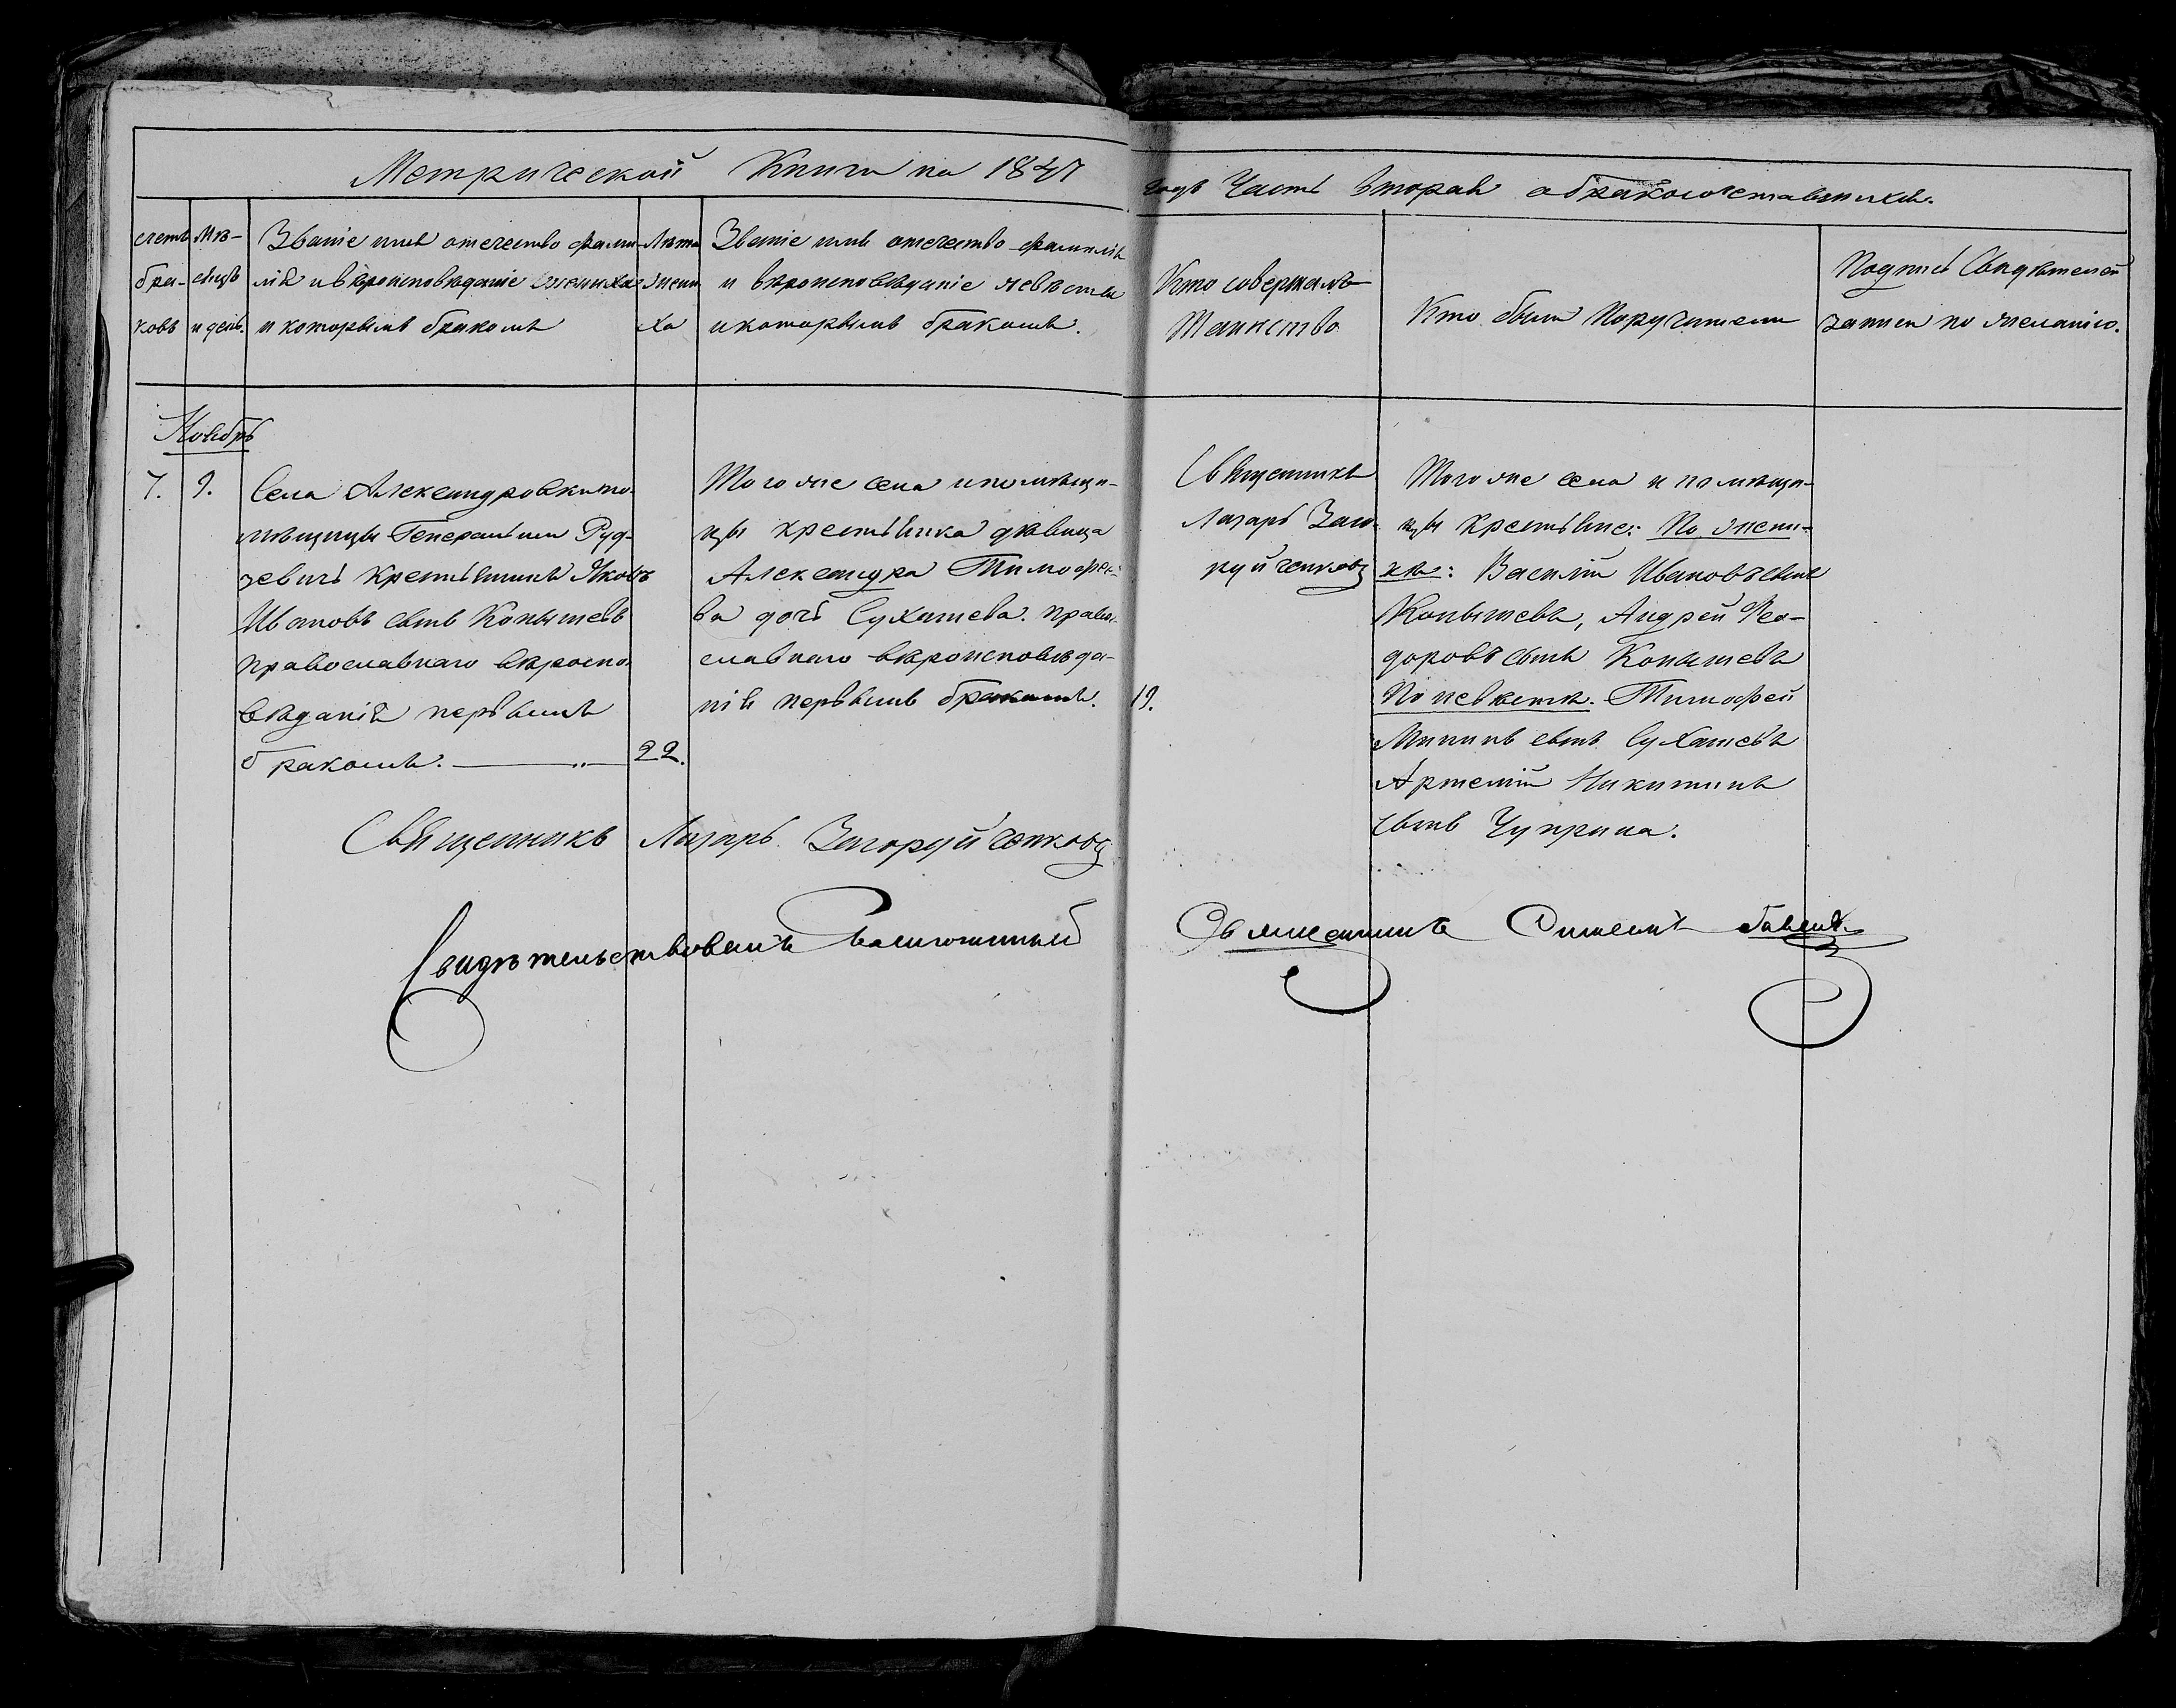 Метрической Книги на 1847
годъ Часть Вторая о бракосочетавшихся.
счетъ бра-ковъ
Мѣ-сяцъ и день.
Званіе имя отечество фами-
лія и вѣроисповѣданіе жениха
и которымъ бракомъ
Лѣта жени ха
Званіе имя отечество фамилія
и вѣроисповѣданіе невѣсты
и которымъ бракомъ.
Кто совершалъ
Таинство
Кто были Поручители
Подпись Свидѣтелей
записи по желанію.
Ноябрь
7. 9.
Села Александровки по-
мѣщицы Генеральши Руд-
зевичь крестьянинъ Яковъ
Ивановъ сынъ Копышевъ
православнаго вѣроиспо-
вѣданія первымъ
бракомъ. 22.
Того же села и помѣщи-
цы крестьянка дѣвица
Александра Тимофее-
ва дочь Сухатева. право-
славнаго вѣроисповѣда-
нія первымъ бракомъ. 19.
Священникъ
Лазарь Заго-
руйченковъ
Того же села и помѣщи-
цы крестьяне: По жени-
хѣ: Василій Ивановъ сынъ
Копышевъ, Андрей Фео-
доровъ сынъ Копышевъ
По невѣстѣ. Тимофей
Мининъ сынъ Сухатевъ
Артемій Никитинъ
сынъ Чуприна.
Священникъ Лазарь Загоруйченковъ
Свидѣтельствовалъ Благочинный
Священникъ Симеонъ